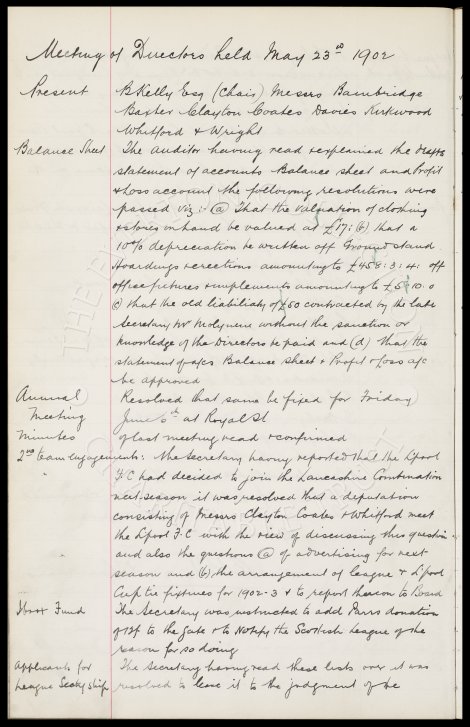 Meeting of Directors held May 23rd 1902
Present B Kelly Esq (Chair) Messrs Bainbridge
Baxter Clayton Coates Davies Kirkwood
Whitford & Wright
Balance Sheet The auditor having read & explained the draft
statement of accounts Balance sheet and Profit
& Loss account the following resolutions were
passed viz:- (a) That the valuation of clothing
& stores in hand be valued at £17: (b) that a
10% depreciation be written off Ground stand
Hoardings & erections amounting to £458:3:4: off
office fixtures & implements amounting to £5:10:0
(c) that the old liability of £50 contracted by the late
Secretary Mr Molyneux without the sanction or
knowledge of the Directors be paid and (d) that the
statement of a/cs Balance sheet & Profit & Loss a/c
be approved
Annual Meeting Resolved that same be fixed for Friday
June 6th at Royal St
Minutes of last meeting read & confirmed
2nd team engagements: The Secretary having reported that the Lpool
F.C had decided to join the Lancashire Combination
next season it was resolved that a deputation
consisting of Messrs Clayton Coates & Whitford meet
the Lpool F.C with the view of discussing this question
and also the questions (a) of advertising for next
season and (b) the arrangement of league & L'pool
Cup tie fixtures for 1902-3 & to report thereon to Board
Ibrox Fund The Secretary was instructed to add Parrs donation
of to the Gate & to Notify the Scottish League of the
reason for so doing
Applicants for League Secty ship The Secretary having read these lists over it was
resolved to leave it to the judgment of the